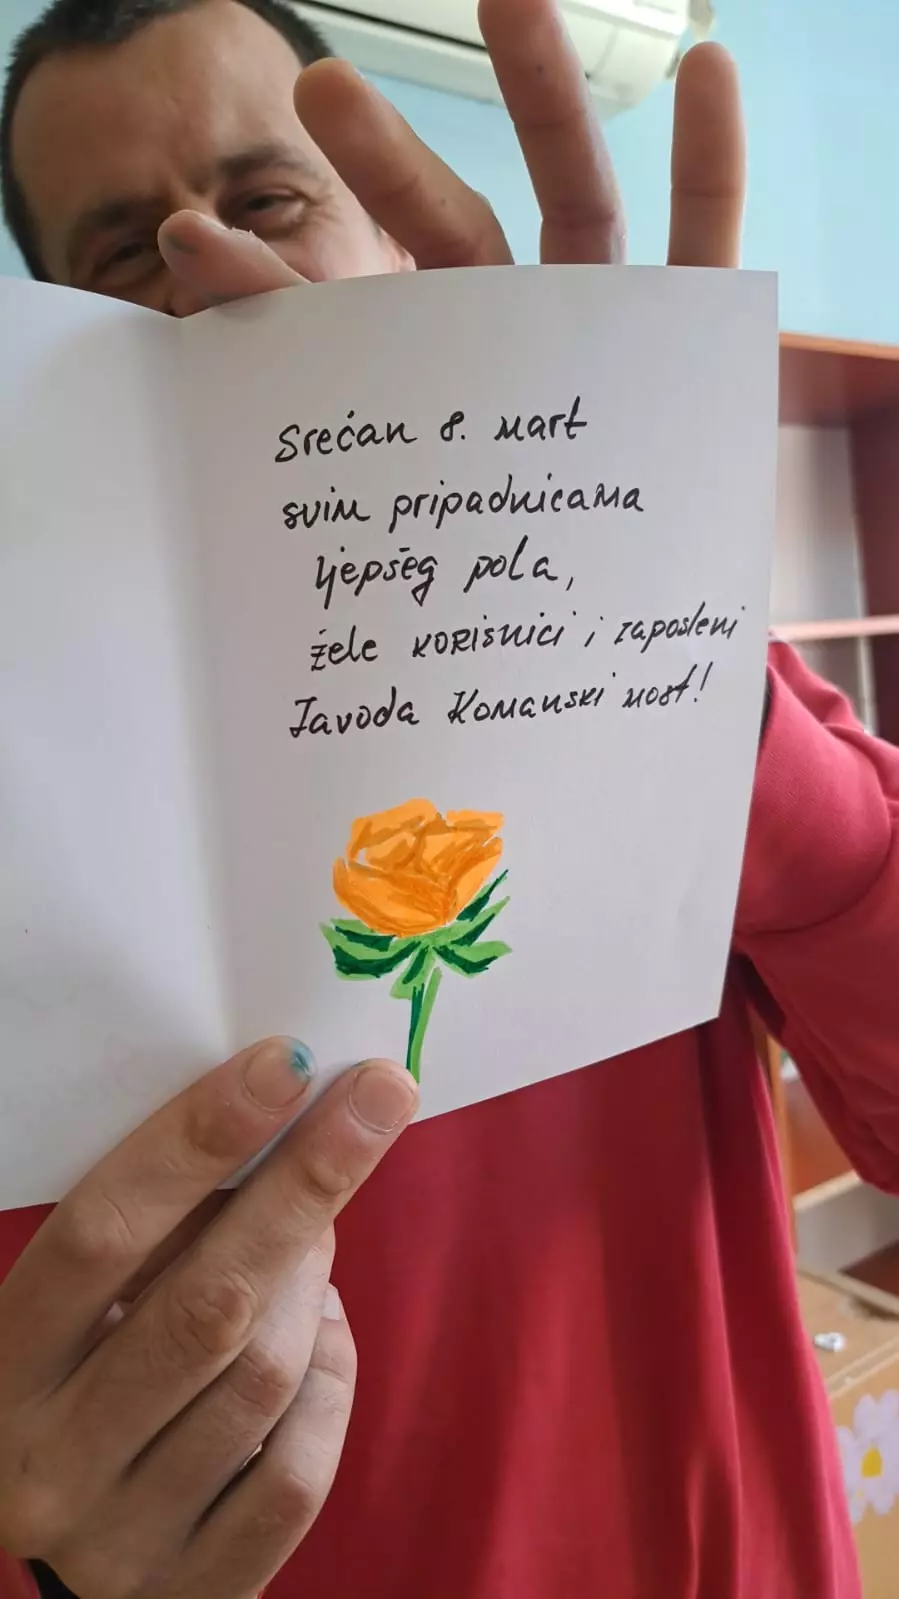 Srećan 8. mart
svim pripadnicama
ljepšeg pola,
žele korisnici i zaposleni
Zavoda Komanski most!